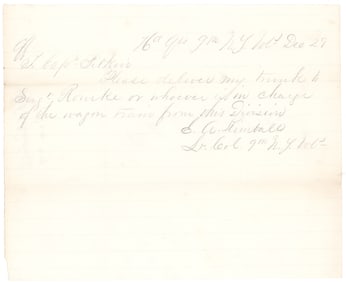 Hd Qrs 9th N.Y. Vols Dec 29
Please deliver my trunk to
Sergt Rourke or whoever is in charge
of the wagon train from this Division
E. A. Kimball
Lt. Col. 9th N.Y. Vols